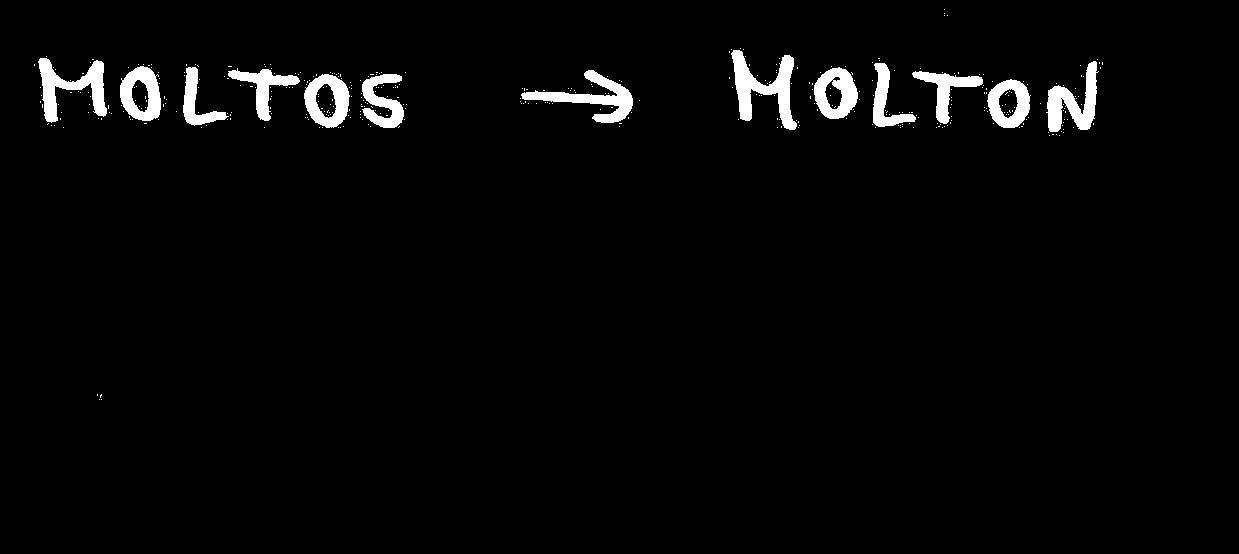 MOLTOS → MOLTON